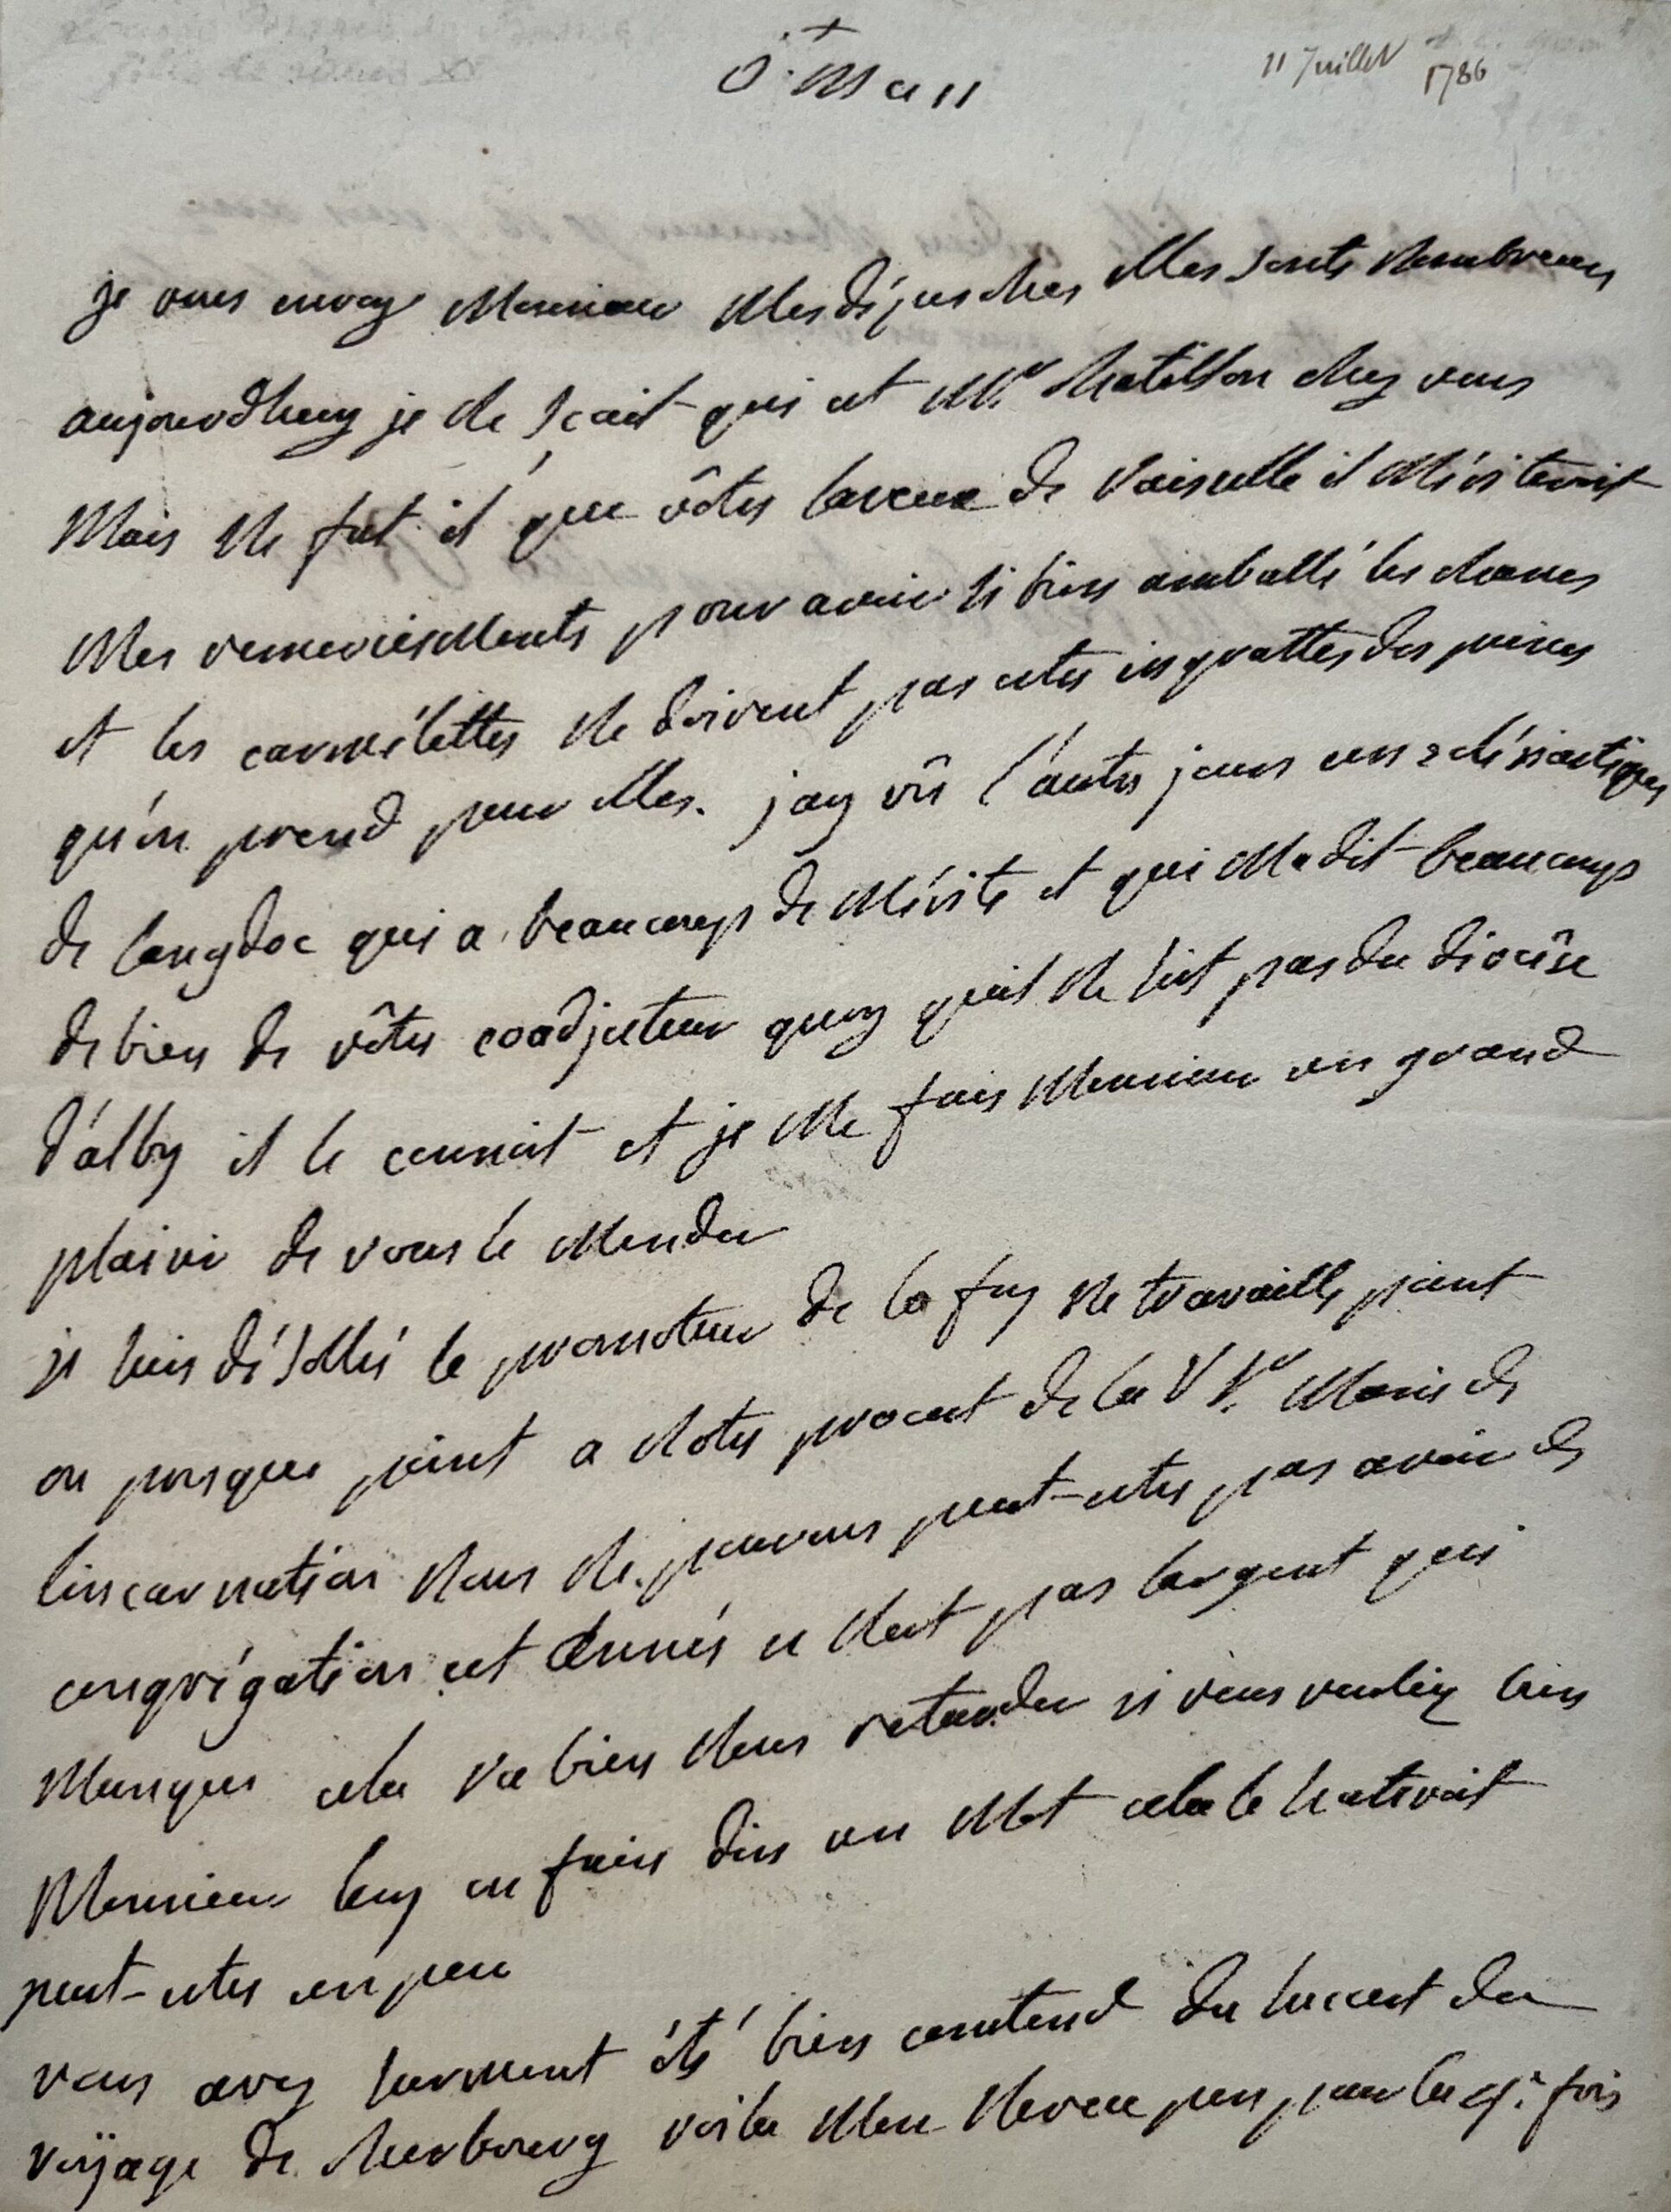 +
11 Juillet 1786
je vous envoy Monsieur Mes dépesches elles sonts Nombreuses
aujourdhuy je Ne sçait qui est Mr. chatillon chez vous
Mais Ne fut il que vôtre laveur de Vaisselle il Mériteroit
Mes remerciesMents pour avoir si bien amballé les choses
et les carmélittes Ne doivent pas estre ingrattes des peines
qu'on prend pour elles. j'ay vû l'autre jours un eclésiastiques
de langdoc qui a beaucoup de Mérite et qui Ma dit beaucoup
de bien de vôtre coadjuteur quoy quil Ne soit pas du diocèse
d'alby il le connoit et je Me fais Monsieur un grand
plaisir de vous le Mender
je suis désollés le promoteur de la foy Ne travaille point
ou presque point a Notre procest de la V Sr. Marie de
lincarnation Nous Ne pouvons peut-estre pas avoir de
congrégation cet année ce Nest pas largent qui
Manque cela va bien Nous retarder si vous vouliez bien
Monsieur luy en faire dire un Mot cela le hateroit
peut-estre un peu
vous avez surement été bien contend du succest du
voÿage de cherbourg voila Mon Neveu pere pour la 4e. fois